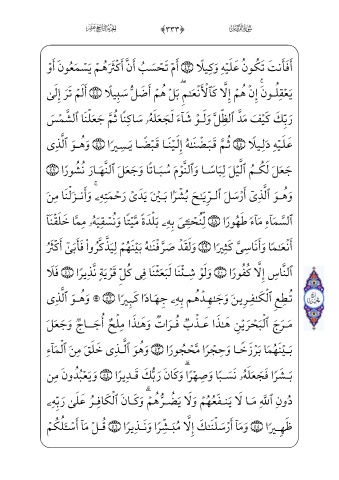 سُورَةُ الفُرْقَانِ ﴿٣٣٣﴾ الجُزْءُ التَّاسِعَ عَشَرَ
أَفَأَنتَ تَكُونُ عَلَيْهِ وَكِيلًا أَمْ تَحْسَبُ أَنَّ أَكْثَرَهُمْ يَسْمَعُونَ أَوْ
يَعْقِلُونَ ۚ إِنْ هُمْ إِلَّا كَٱلْأَنْعَٰمِ ۖ بَلْ هُمْ أَضَلُّ سَبِيلًا أَلَمْ تَرَ إِلَىٰ
رَبِّكَ كَيْفَ مَدَّ ٱلظِّلَّ وَلَوْ شَآءَ لَجَعَلَهُۥ سَاكِنًا ثُمَّ جَعَلْنَا ٱلشَّمْسَ
عَلَيْهِ دَلِيلًا ثُمَّ قَبَضْنَٰهُ إِلَيْنَا قَبْضًا يَسِيرًا وَهُوَ ٱلَّذِى
جَعَلَ لَكُمُ ٱلَّيْلَ لِبَاسًا وَٱلنَّوْمَ سُبَاتًا وَجَعَلَ ٱلنَّهَارَ نُشُورًا
وَهُوَ ٱلَّذِىٓ أَرْسَلَ ٱلرِّيَٰحَ بُشْرًۢا بَيْنَ يَدَىْ رَحْمَتِهِۦ ۚ وَأَنزَلْنَا مِنَ
ٱلسَّمَآءِ مَآءً طَهُورًا لِّنُحْۦِىَ بِهِۦ بَلْدَةً مَّيْتًا وَنُسْقِيَهُۥ مِمَّا خَلَقْنَآ
أَنْعَٰمًا وَأَنَاسِىَّ كَثِيرًا وَلَقَدْ صَرَّفْنَٰهُ بَيْنَهُمْ لِيَذَّكَّرُوا۟ فَأَبَىٰٓ أَكْثَرُ
ٱلنَّاسِ إِلَّا كُفُورًا وَلَوْ شِئْنَا لَبَعَثْنَا فِى كُلِّ قَرْيَةٍ نَّذِيرًا فَلَا
تُطِعِ ٱلْكَٰفِرِينَ وَجَٰهِدْهُم بِهِۦ جِهَادًا كَبِيرًا ۞ وَهُوَ ٱلَّذِى
مَرَجَ ٱلْبَحْرَيْنِ هَٰذَا عَذْبٌ فُرَاتٌ وَهَٰذَا مِلْحٌ أُجَاجٌ وَجَعَلَ
بَيْنَهُمَا بَرْزَخًا وَحِجْرًا مَّحْجُورًا وَهُوَ ٱلَّذِى خَلَقَ مِنَ ٱلْمَآءِ
بَشَرًا فَجَعَلَهُۥ نَسَبًا وَصِهْرًا ۗ وَكَانَ رَبُّكَ قَدِيرًا وَيَعْبُدُونَ مِن
دُونِ ٱللَّهِ مَا لَا يَنفَعُهُمْ وَلَا يَضُرُّهُمْ ۗ وَكَانَ ٱلْكَافِرُ عَلَىٰ رَبِّهِۦ
ظَهِيرًا وَمَآ أَرْسَلْنَٰكَ إِلَّا مُبَشِّرًا وَنَذِيرًا قُلْ مَآ أَسْـَٔلُكُمْ